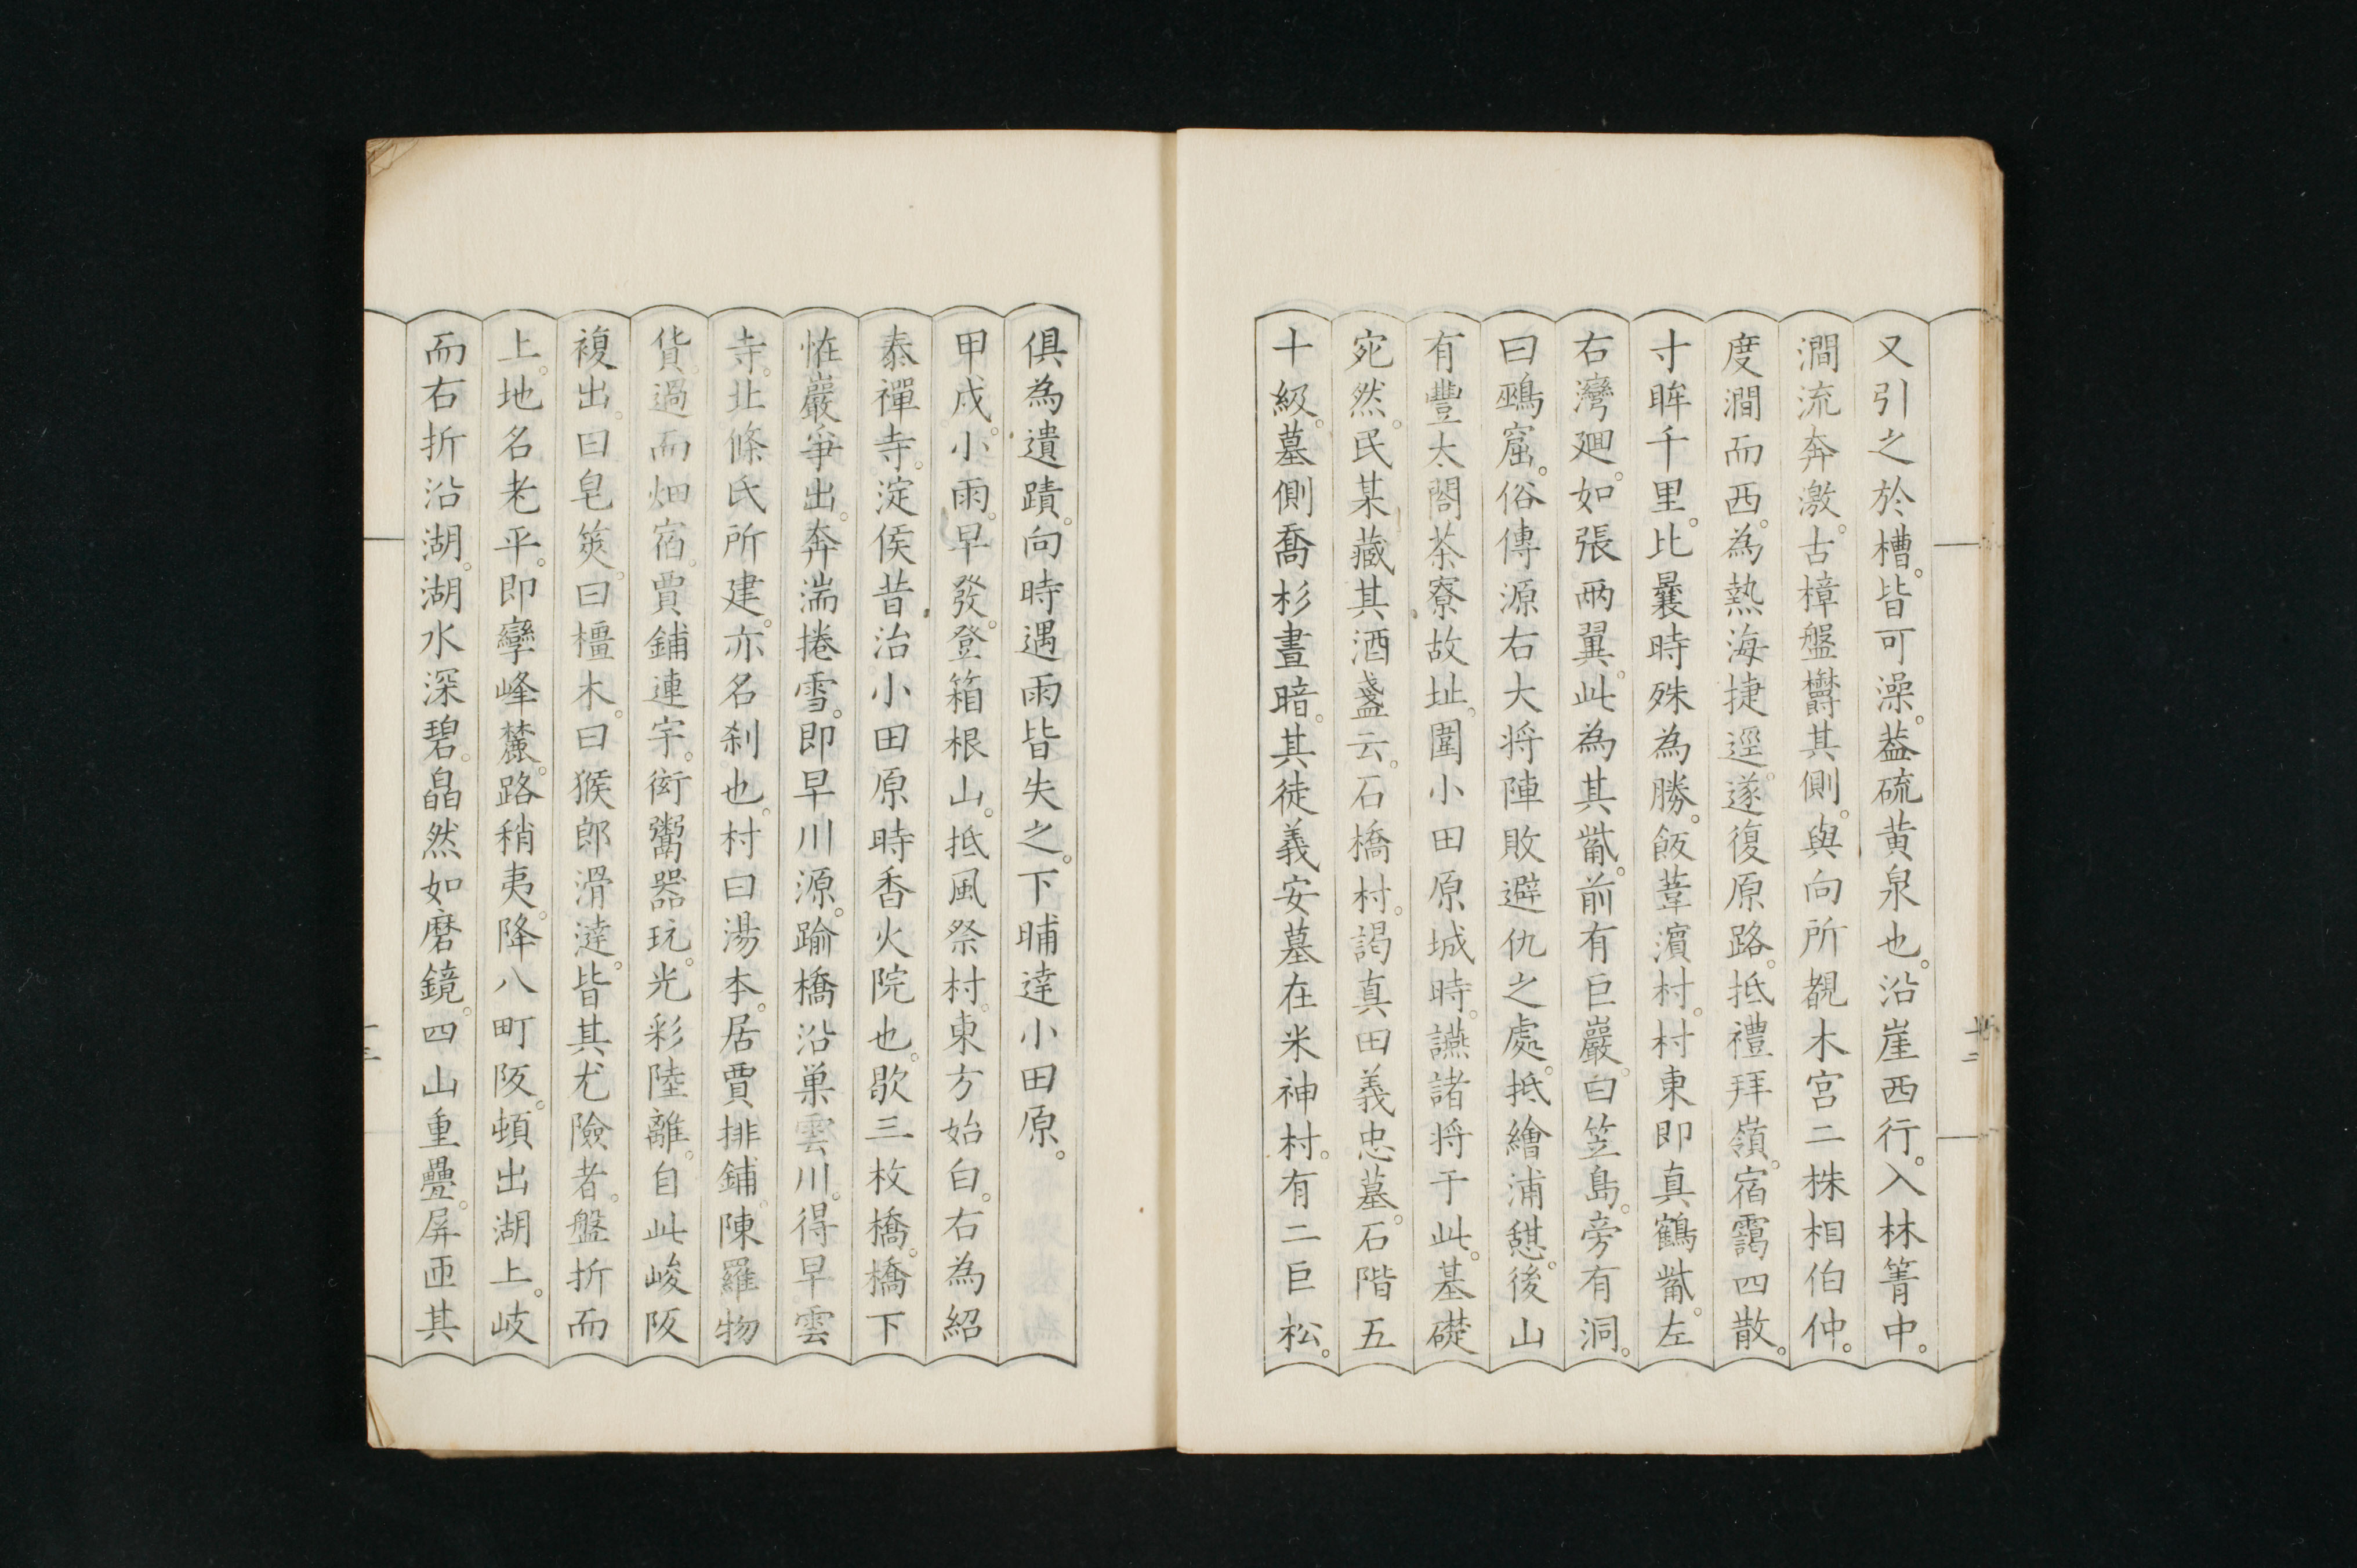 又引之於槽。皆可澡。葢硫黄泉也。沿崖西行。入林箐中。
澗流奔激。古樟盤欝其側。與向所覩木宮二株相伯仲。
度澗而西。為熱海捷逕。遂復原路。抵禮拜嶺。宿靄四散。
寸眸千里。比曩時殊為勝。飯葦濱村。村東即真鶴觜。左
右灣廻。如張兩翼。此為其觜。前有巨巖。曰笠島。旁有洞。
曰鵐窟。俗傳源右大将陣敗避仇之處。抵繪浦憩。後山
有豐太閤茶寮故址。圍小田原城時。讌諸将于此。基礎
宛然。民某藏其酒盞云。石橋村。謁真田義忠墓。石階五
十級。墓側喬杉晝暗。其徒義安墓在米神村。有二巨松。
俱為遺蹟。向時遇雨皆失之。下晡達小田原。
甲戌。小雨。早發。登箱根山。抵風祭村。東方始白。右為紹
泰禪寺。淀侯昔治小田原時香火院也。歇三枚橋。橋下
恠巖爭出。奔湍捲雪。即早川源。踰橋沿巣雲川。得早雲
寺。北條氏所建。亦名刹也。村曰湯本。居賈排鋪。陳羅物
貨。過而畑宿。賈鋪連宇。衒鬻器玩。光彩陸離。自此峻阪
複出。曰皂筴。曰橿木。曰猴郎滑澾。皆其尤險者。盤折而
上。地名老平。即孿峰麓。路稍夷。降八町阪。頓出湖上。岐
而右折沿湖。湖水深碧。皛然如磨鏡。四山重疊。屏匝其